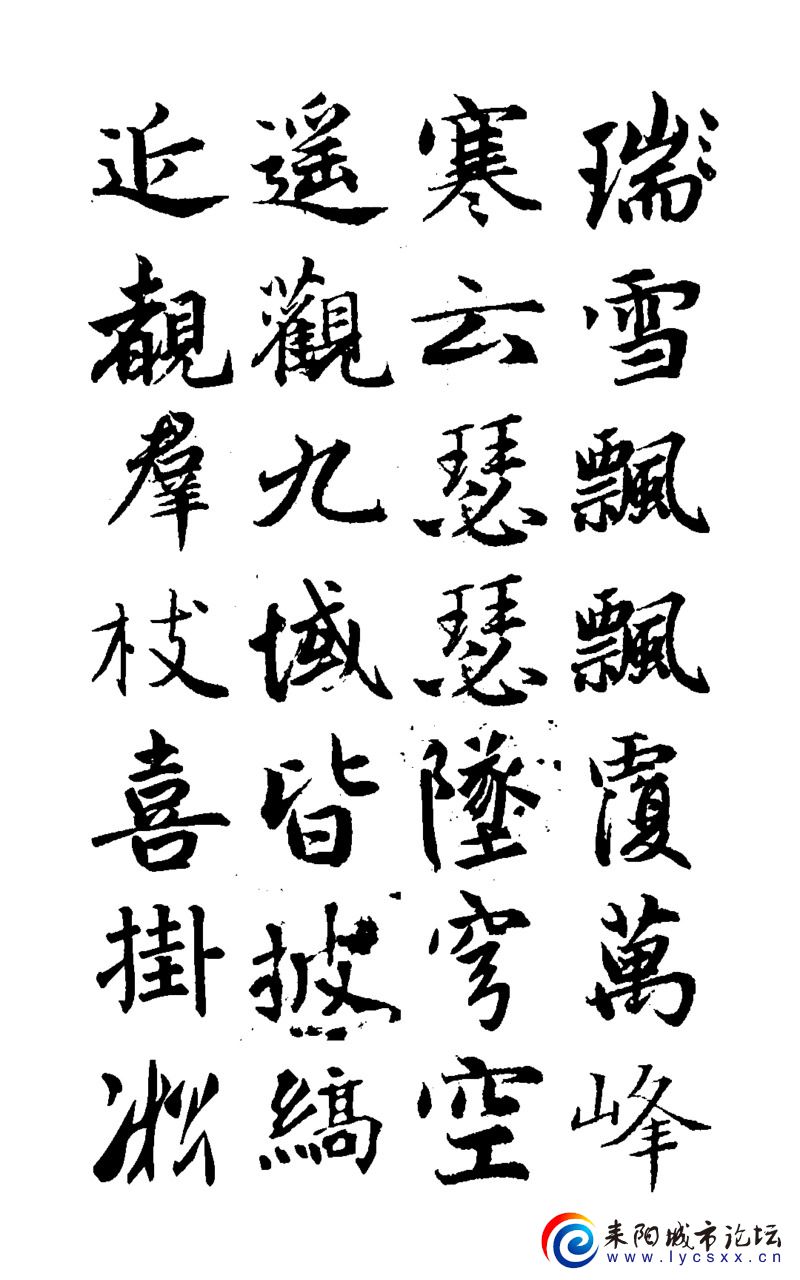 瑞雪飄飄覆萬峰
寒云瑟瑟墜穹空
遥觀九域皆披縞
近覩羣枝喜掛凇
耒阳城市论坛
www.lycsxx.cn